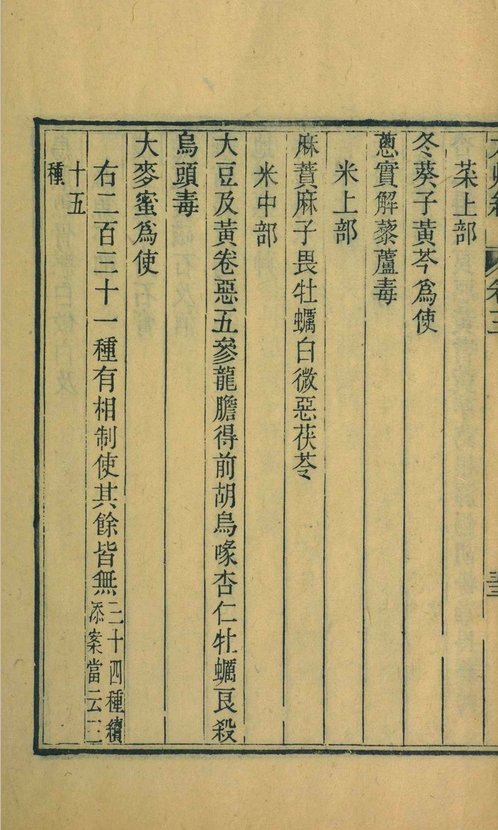 菜上部
冬葵子黃芩爲使
蔥實解藜蘆毒
米上部
麻蕡麻子畏牡蠣白微惡茯苓
米中部
大豆及黃卷惡五參龍膽得前胡烏喙杏仁牡蠣良殺
烏頭毒
大麥蜜爲使
右二百三十一種有相制使其餘皆無三十四種續添案當云三
十五種